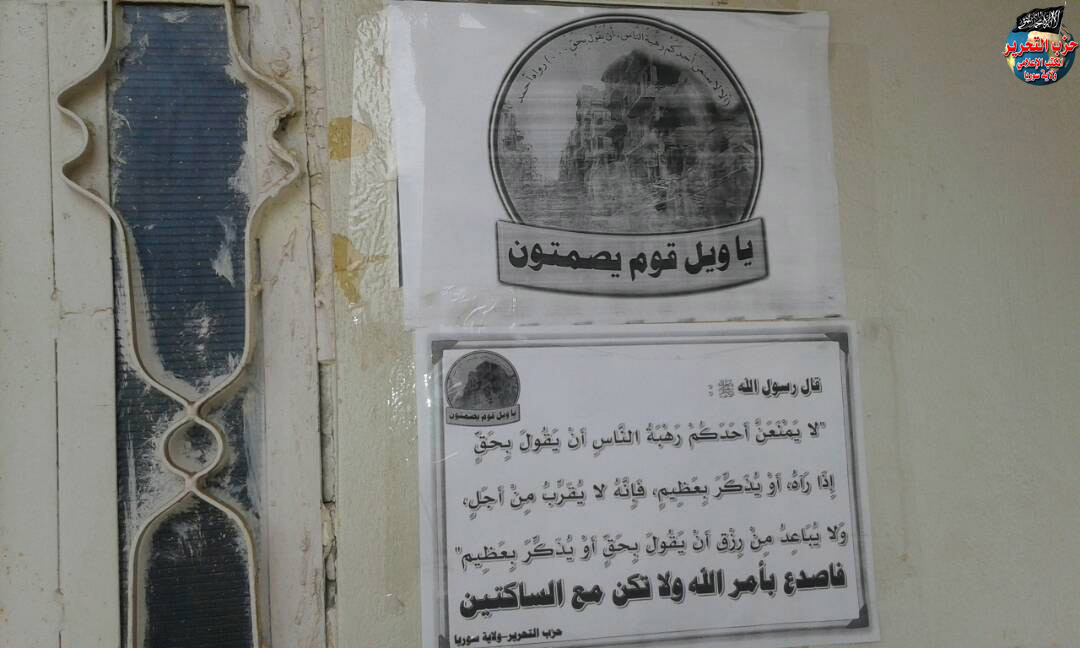 حزب التحرير
المكتب الإعلامي
ولاية سوريا
(ألا لا يمنعن أحدكم رهبة الناس، أن يقول بحق ...) رواه أحمد
يا ويل قوم يصمتون
يا ويل قوم يصمتون
قال رسول الله ﷺ :
"لا يَمْنَعَنَّ أَحَدَكُمْ رَهْبَةُ النَّاسِ أَنْ يَقُولَ بِحَقٍّ
إِذَا رَآهُ، أَوْ يُذَكِّرَ بِعَظِيمٍ، فَإِنَّهُ لا يُقَرِّبُ مِنْ أَجَلٍ،
وَلا يُبَاعِدُ مِنْ رِزْقٍ أَنْ يَقُولَ بِحَقٍّ أَوْ يُذَكِّرَ بِعَظِيمٍ"
فاصدع بأمر الله ولا تكن مع الساكتين
حزب التحرير-ولاية سوريا